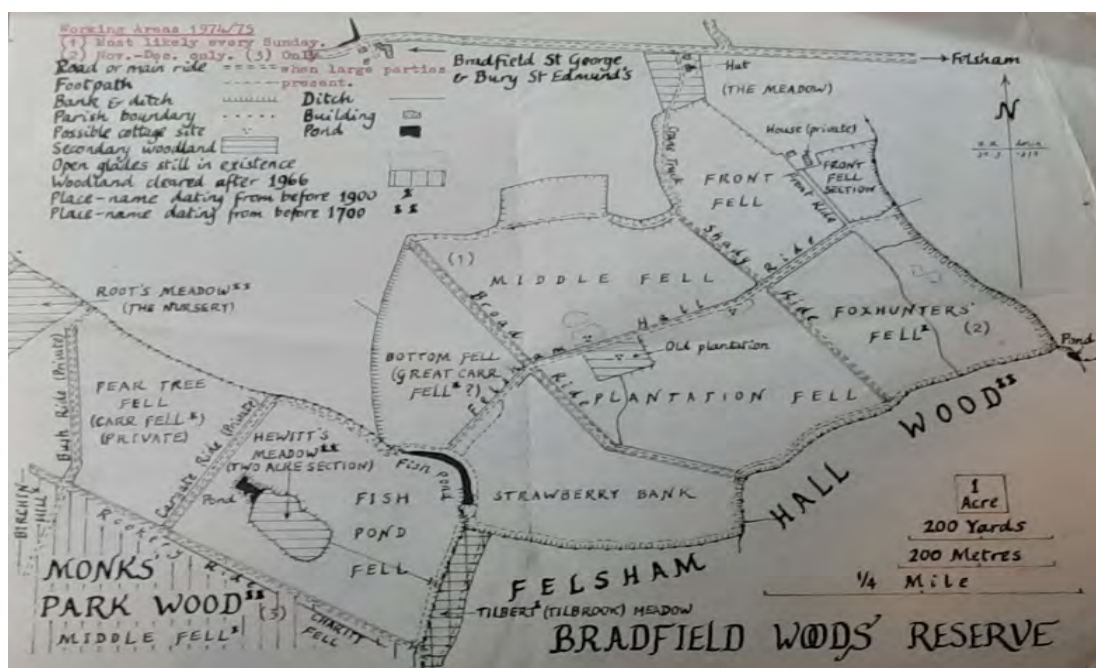 Working Areas 1974/75
(1) Most likely every Sunday.
(2) Nov.-Dec. only. (3) Only
when large parties
present.
Road or main ride
Footpath
Bank & ditch
Ditch
Parish boundary
Building
Possible cottage site
Pond
Secondary woodland
Open glades still in existence
Woodland cleared after 1966
Place-name dating from before 1900 x
Place-name dating from before 1700 xx
Bradfield St George
& Bury St Edmund's
Felsham
Hut
(THE MEADOW)
N
House (private)
FRONT
FELL
SECTION
Front Ride
FRONT
FELL
Shady Ride
(1)
MIDDLE FELL
Broad Ride
Felsham Hall Ride
FOXHUNTERS'
FELL x
(2)
Pond
ROOT'S MEADOW xx
(THE NURSERY)
BOTTOM FELL
(GREAT CARR
FELL x ?)
Old plantation
PLANTATION FELL
Bush Ride (Private)
FEAR TREE
FELL
(CARR FELL x)
(PRIVATE)
Cargate Ride (Private)
HEWITT'S
MEADOW xx
(TWO ACRE SECTION)
Pond
Fish Pond
FISH
POND
FELL
STRAWBERRY BANK
FELSHAM HALL WOOD xx
1
Acre
200 Yards
200 Metres
1/4 Mile
BIRCHIN
HILL x
Rookery Ride
MONKS'
PARK WOOD xx
(3)
MIDDLE FELL x
CHARITY
FELL
TILBERT x (TILBROOK) MEADOW
BRADFIELD WOODS' RESERVE